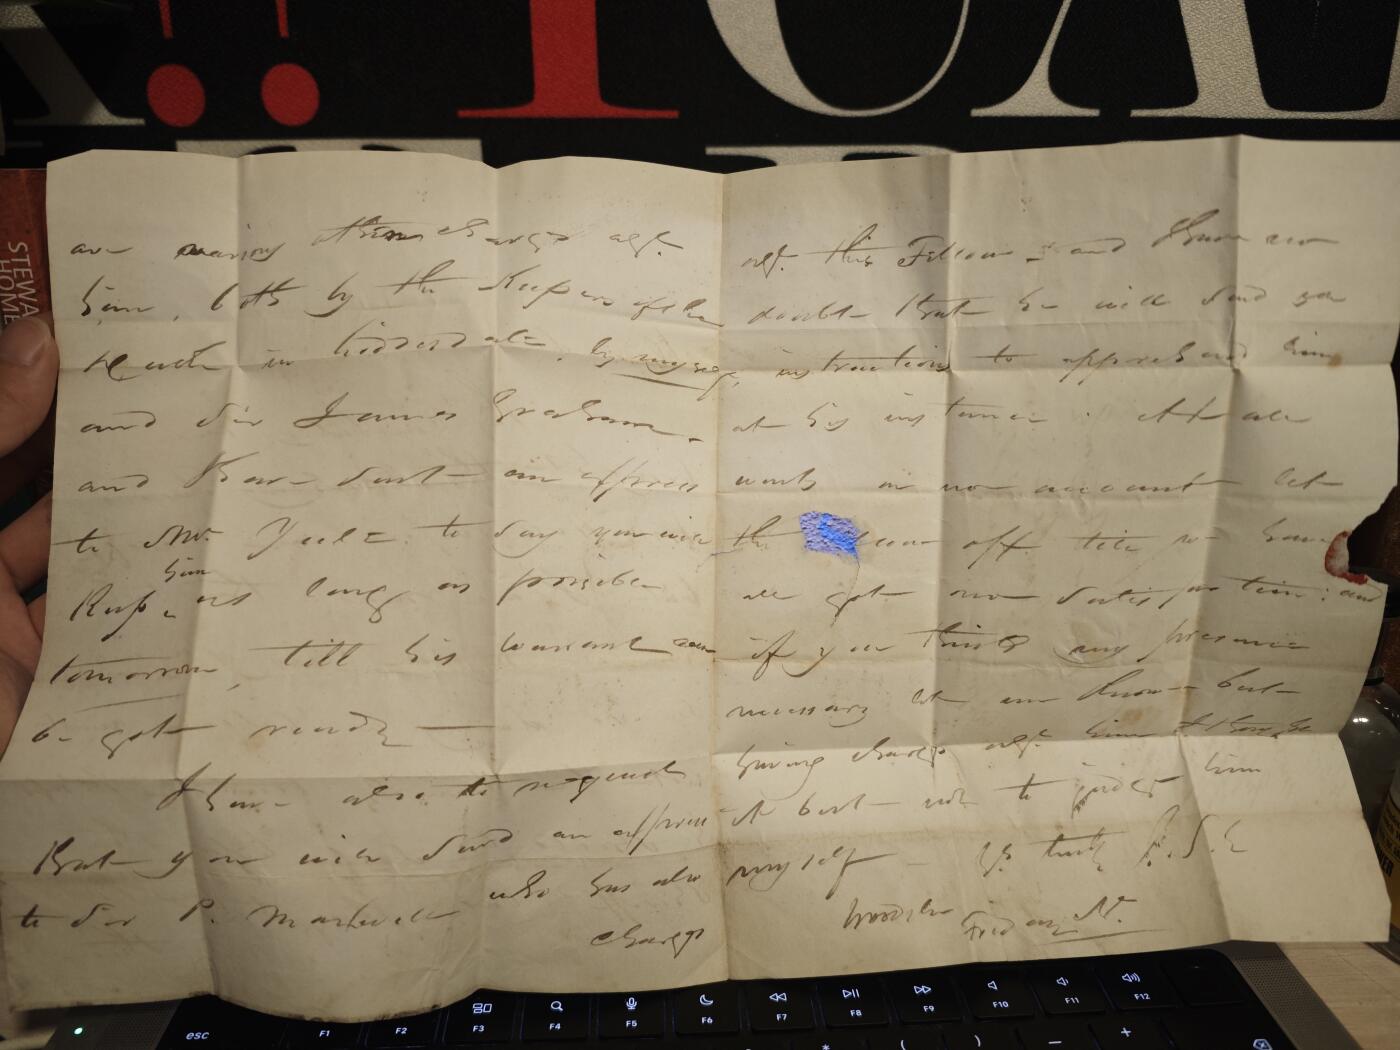 are various other charges agt.
him, both by the Keepers of the
Heath in Liddesdale, by myself,
and Sir James Graham.
and have sent an express
to Mr. Yule to say you will
Keep him as long as possible
tomorrow, till his warrant can
be got ready —
I have also to request
that you will send an express
to Sir P. Maxwell who has also
charges
agt. this Fellow — and I have no
doubt that he will send you
instructions to apprehend him
at his instance. At all
events on no account let
the off till we have
all got our satisfaction: and
if you think my presence
necessary let me know — but
having charges agt. him I thought
it best not to judge him
myself — Yrs truly
Friday Nt.
STEWA
HOME
esc
F1
F2
F3
F4
F5
F6
F7
F8
F9
F10
F11
F12